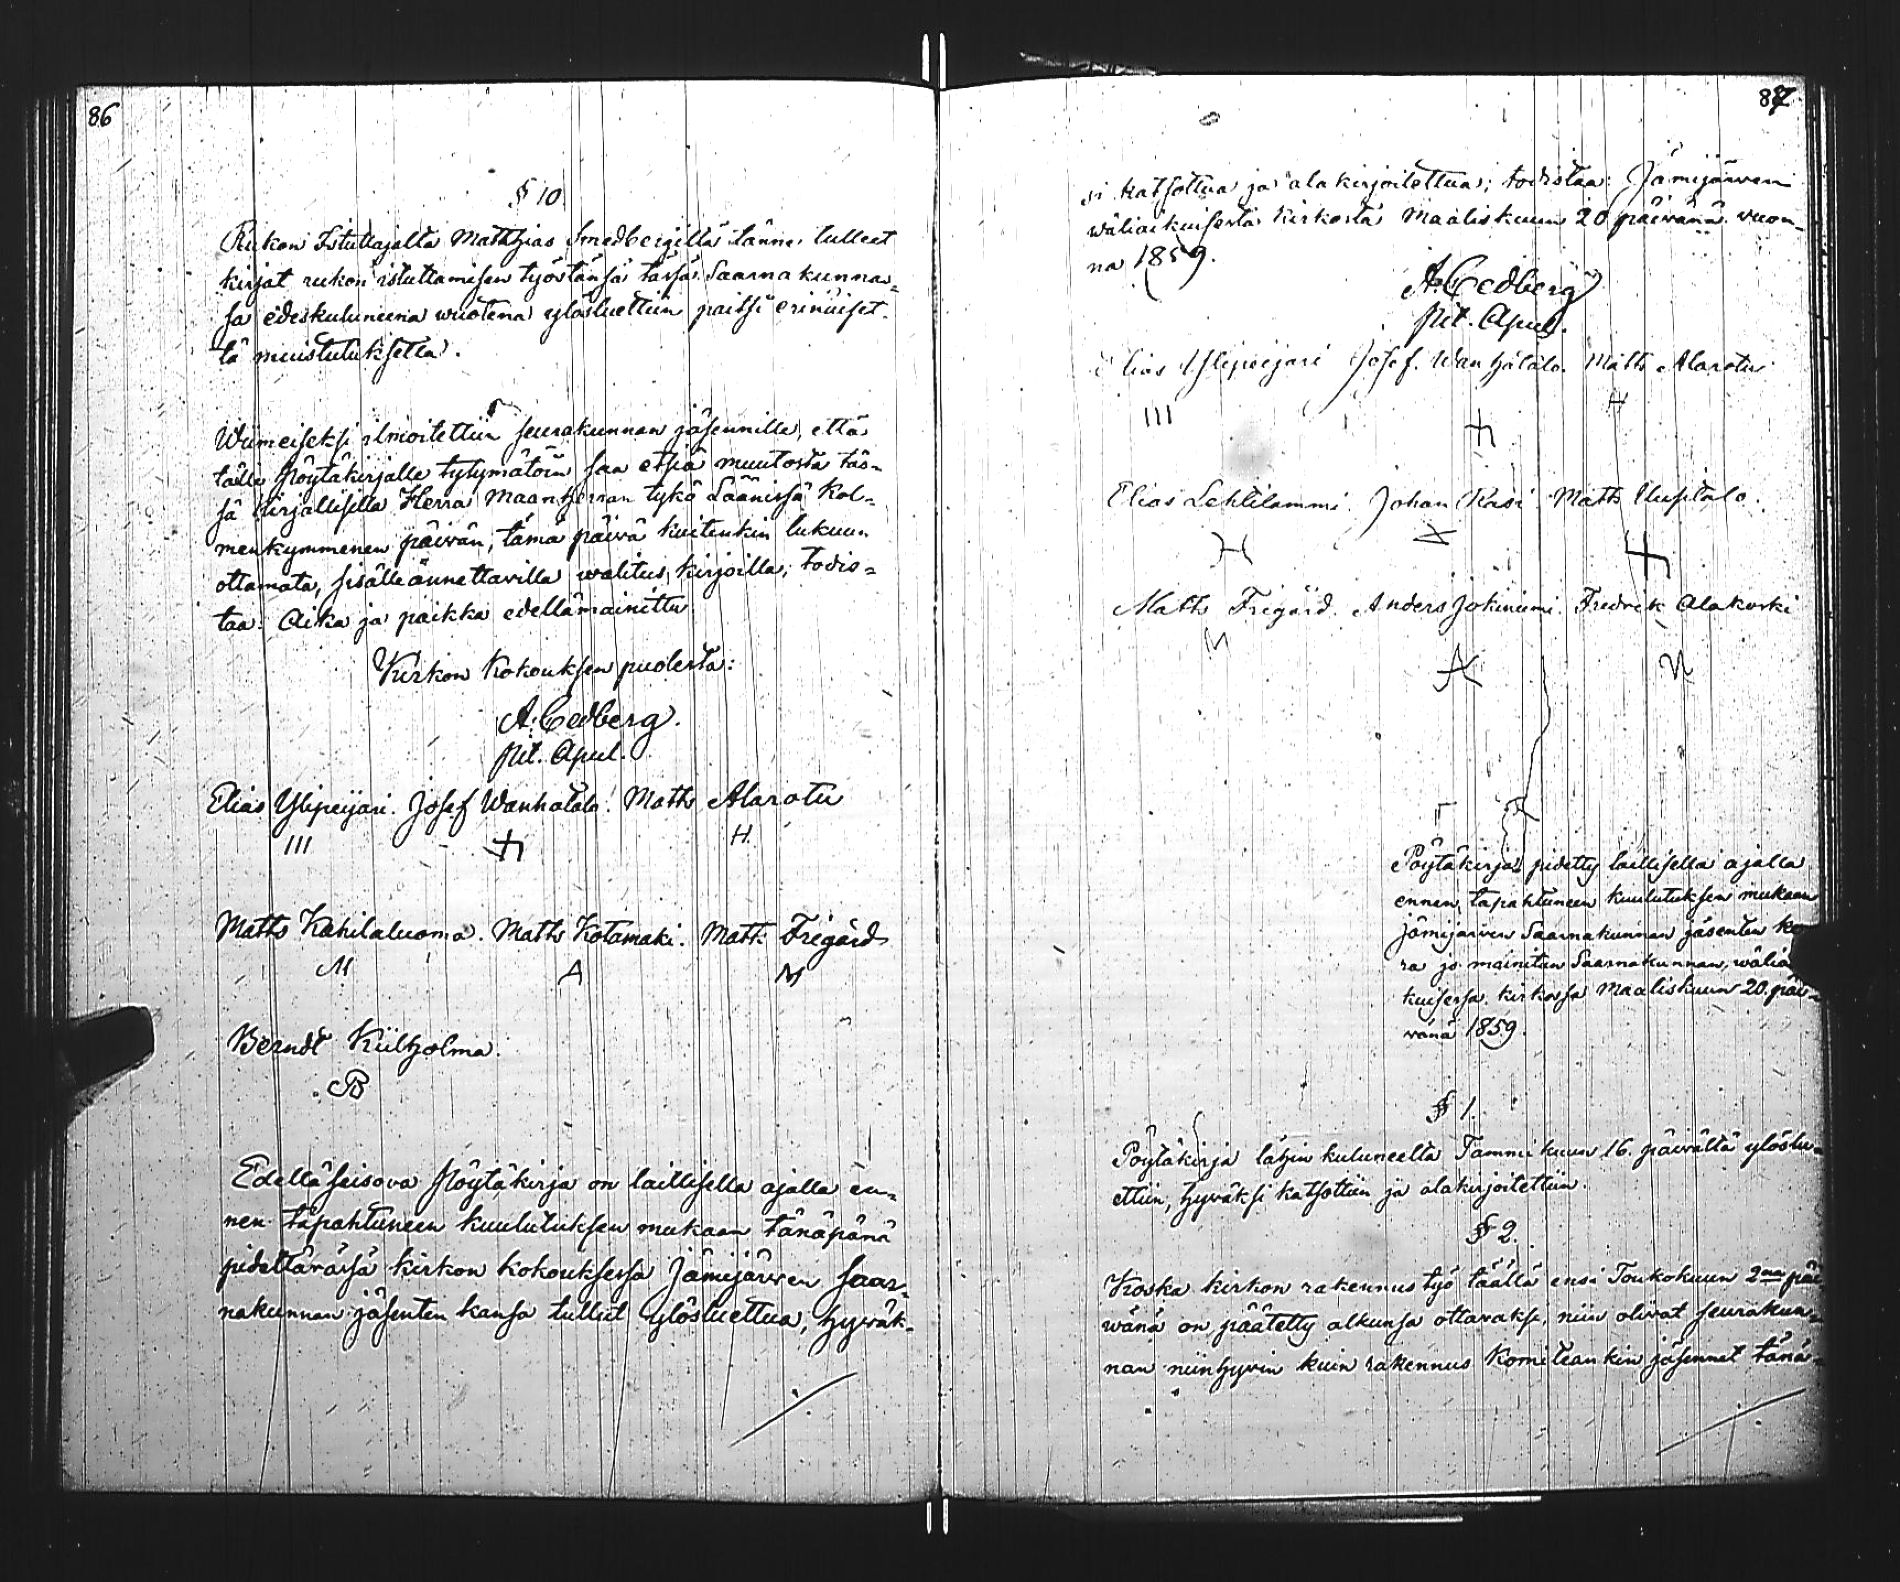 86
§ 10.
Rukon Istuttajalta Matthias Smedbergiltä tänne tulleet
kirjat rukon istuttamisen työstänsä tässä Saarnakunnas=
sa edeskuluneena wuotena ylösluettiin paitsi erinäiset=
tä muistutuksetta.
Wiimeiseksi ilmoitettiin seurakunnan jäsennille, että
tälle Pöytäkirjalle tytymätöin saa etsiä muutosta täs=
sä kirjallisella Herra Maanherran tykö Läänissä Kol=
menkymmenen päivän, tämä päivä kuitenkin lukuun
ottamata, sisälleannettavilla walitus kirjoilla; todis=
taa. Aika ja paikka edellämainittu
Kirkon Kokouksen puolesta:
A. Cedberg.
Pit. Apul.
Elias Ylipeijari. Josef Wanhatalo. Matts Alarotu
III H
Matts Kahilaluoma. Matts Kotamaki. Matts Frigård
M A M
Berndt Kiilholma.
B
Edelläseisova Pöytäkirja on laillisella ajalla en=
nen tapahtuneen kuulutuksen mukaan tänäpänä
pidettävässä kirkon kokouksessa Jämijärven saar=
nakunnan jäsenten kansa tullut ylösluettua, hyväk=
87
si katsottua ja alakirjoitettua; todistaa: Jämijärven
wäliaikuisesta kirkosta Maaliskuun 20 päivänä vuon=
na 1859.
A. Cedberg
Pit. Apul.
Elias Ylipeijari Josef Wanhatalo. Matts Alarotu
III H
Elias Lehtilammi. Johan Rasi Matts Uusitalo.
H
Matts Frigård. Anders Jokiniemi. Fredrik Alakoski
M A
Pöytäkirja, pidetty laillisella ajalla
ennen tapahtuneen kuulutuksen mukaan
Jämijärven Saarnakunnan jäsenten
ja mainitun Saarnakunnan, wäliai
kuisessa kirkossa Maaliskuun 20. päi=
vänä 1859.
§ 1.
Pöytäkirja lähin kuluneelta Tammikuun 16. päivältä ylöslu=
ettiin, hyväksi katsottiin ja alakirjoitettiin.
§ 2.
Koska kirkon rakennus työ täällä ensi Toukokuun 2na päi
wänä on päätetty alkunsa ottavaksi, niin olivat seurakun=
nan niinhyvin kuin rakennus Komiteankin jäsennet tänä=